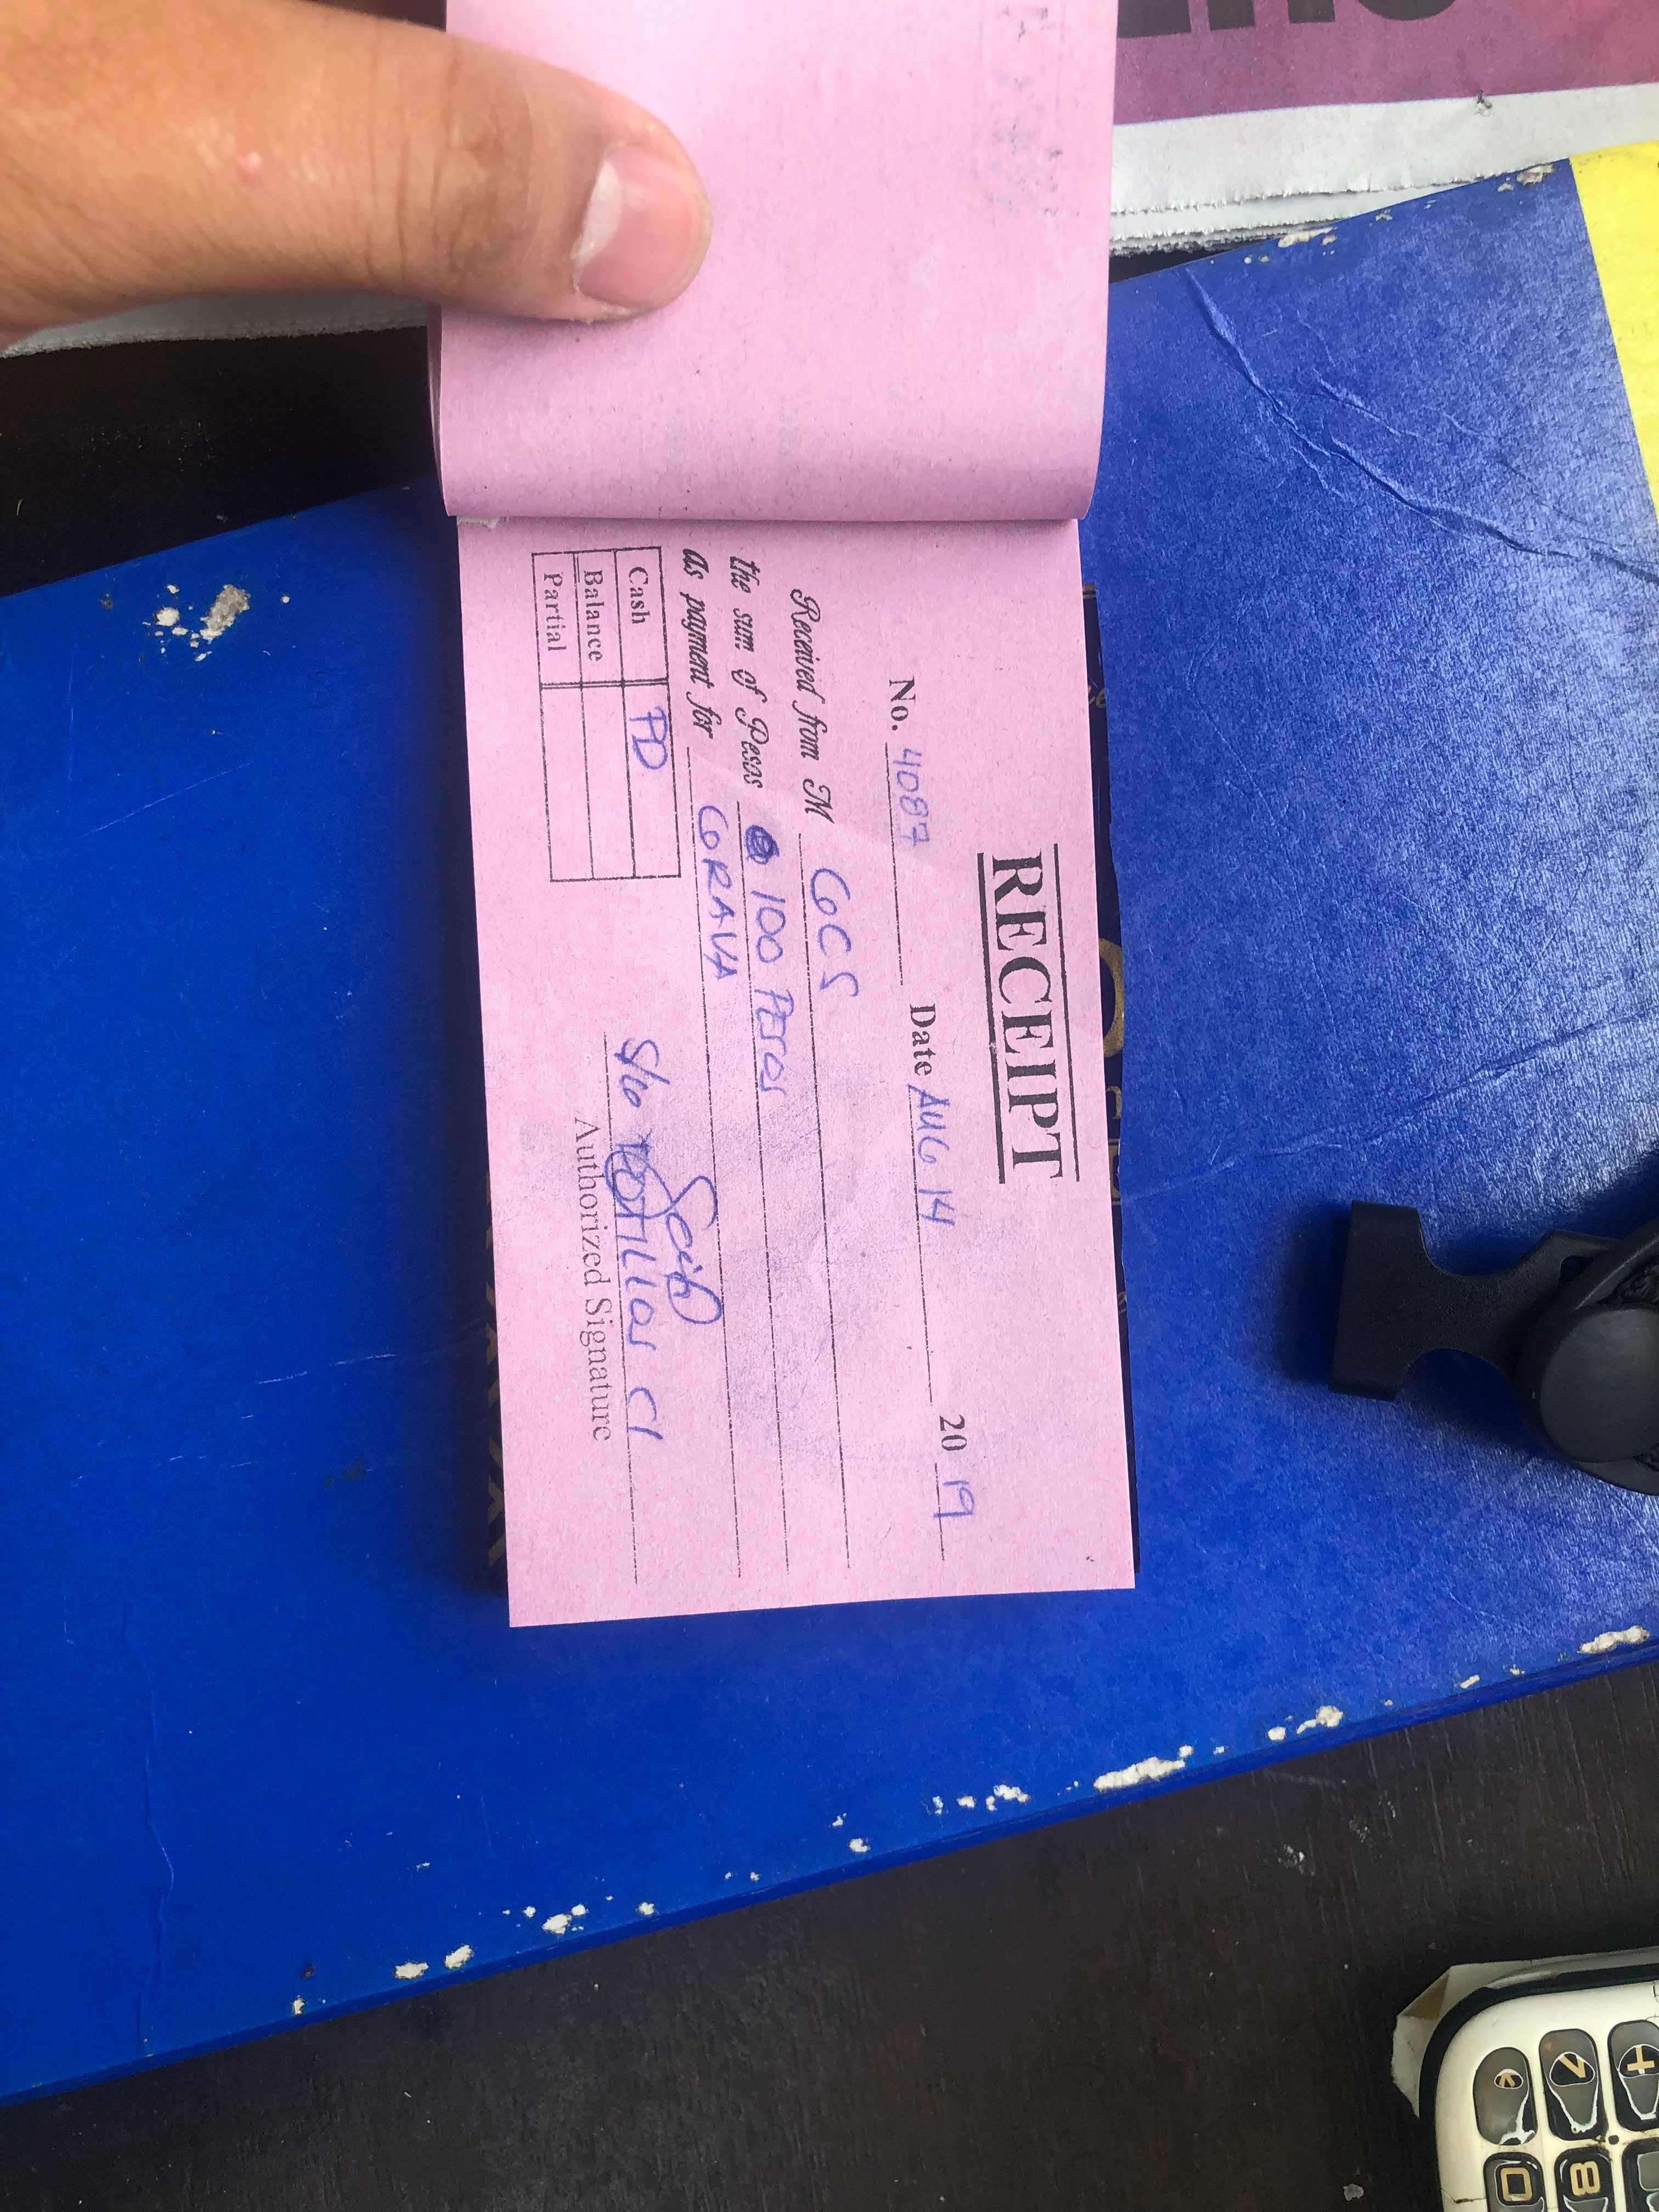 RECEIPT
No. 4087 Date AUG 14 20 19
Received from M GCS
the sum of Pesos 100 Pesos
as payment for GRAVA
Cash PD
Balance
Partial
S/o CI
Authorized Signature